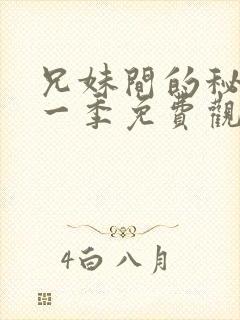 兄妹間的秘
一季免費觀
4白八月